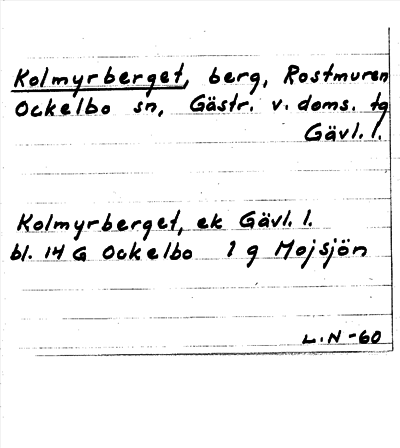 Kolmyrberget, berg, Rostmuren
Ockelbo sn, Gästr. v. doms. tg
Gävl. l.
Kolmyrberget, ek Gävl. l.
bl. 14 G Ockelbo 1 g Mojsjön
L.N -60